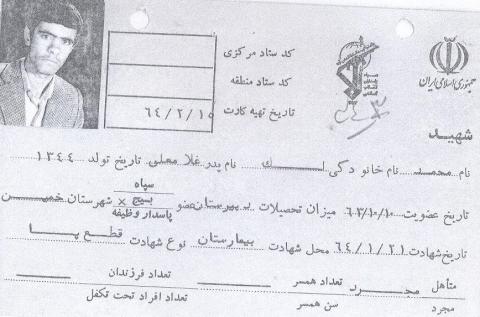 جمهوری اسلامی ایران
کد ستاد مرکزی
کد ستاد منطقه
تاریخ تهیه کارت ۶۴/۲/۱۵
شهید
نام محمد نام خانوادگی نام پدر تاریخ تولد ۱۳۴۴
تاریخ عضویت ۶۳/۱۰/۱۰ میزان تحصیلات دبیرستان عضو سپاه بسیج × پاسدار وظیفه شهرستان
تاریخ شهادت ۶۴/۱/۲۱ محل شهادت بیمارستان نوع شهادت قطع پا
متأهل مجرد مجرد تعداد همسر تعداد فرزندان
سن همسر تعداد افراد تحت تکفل